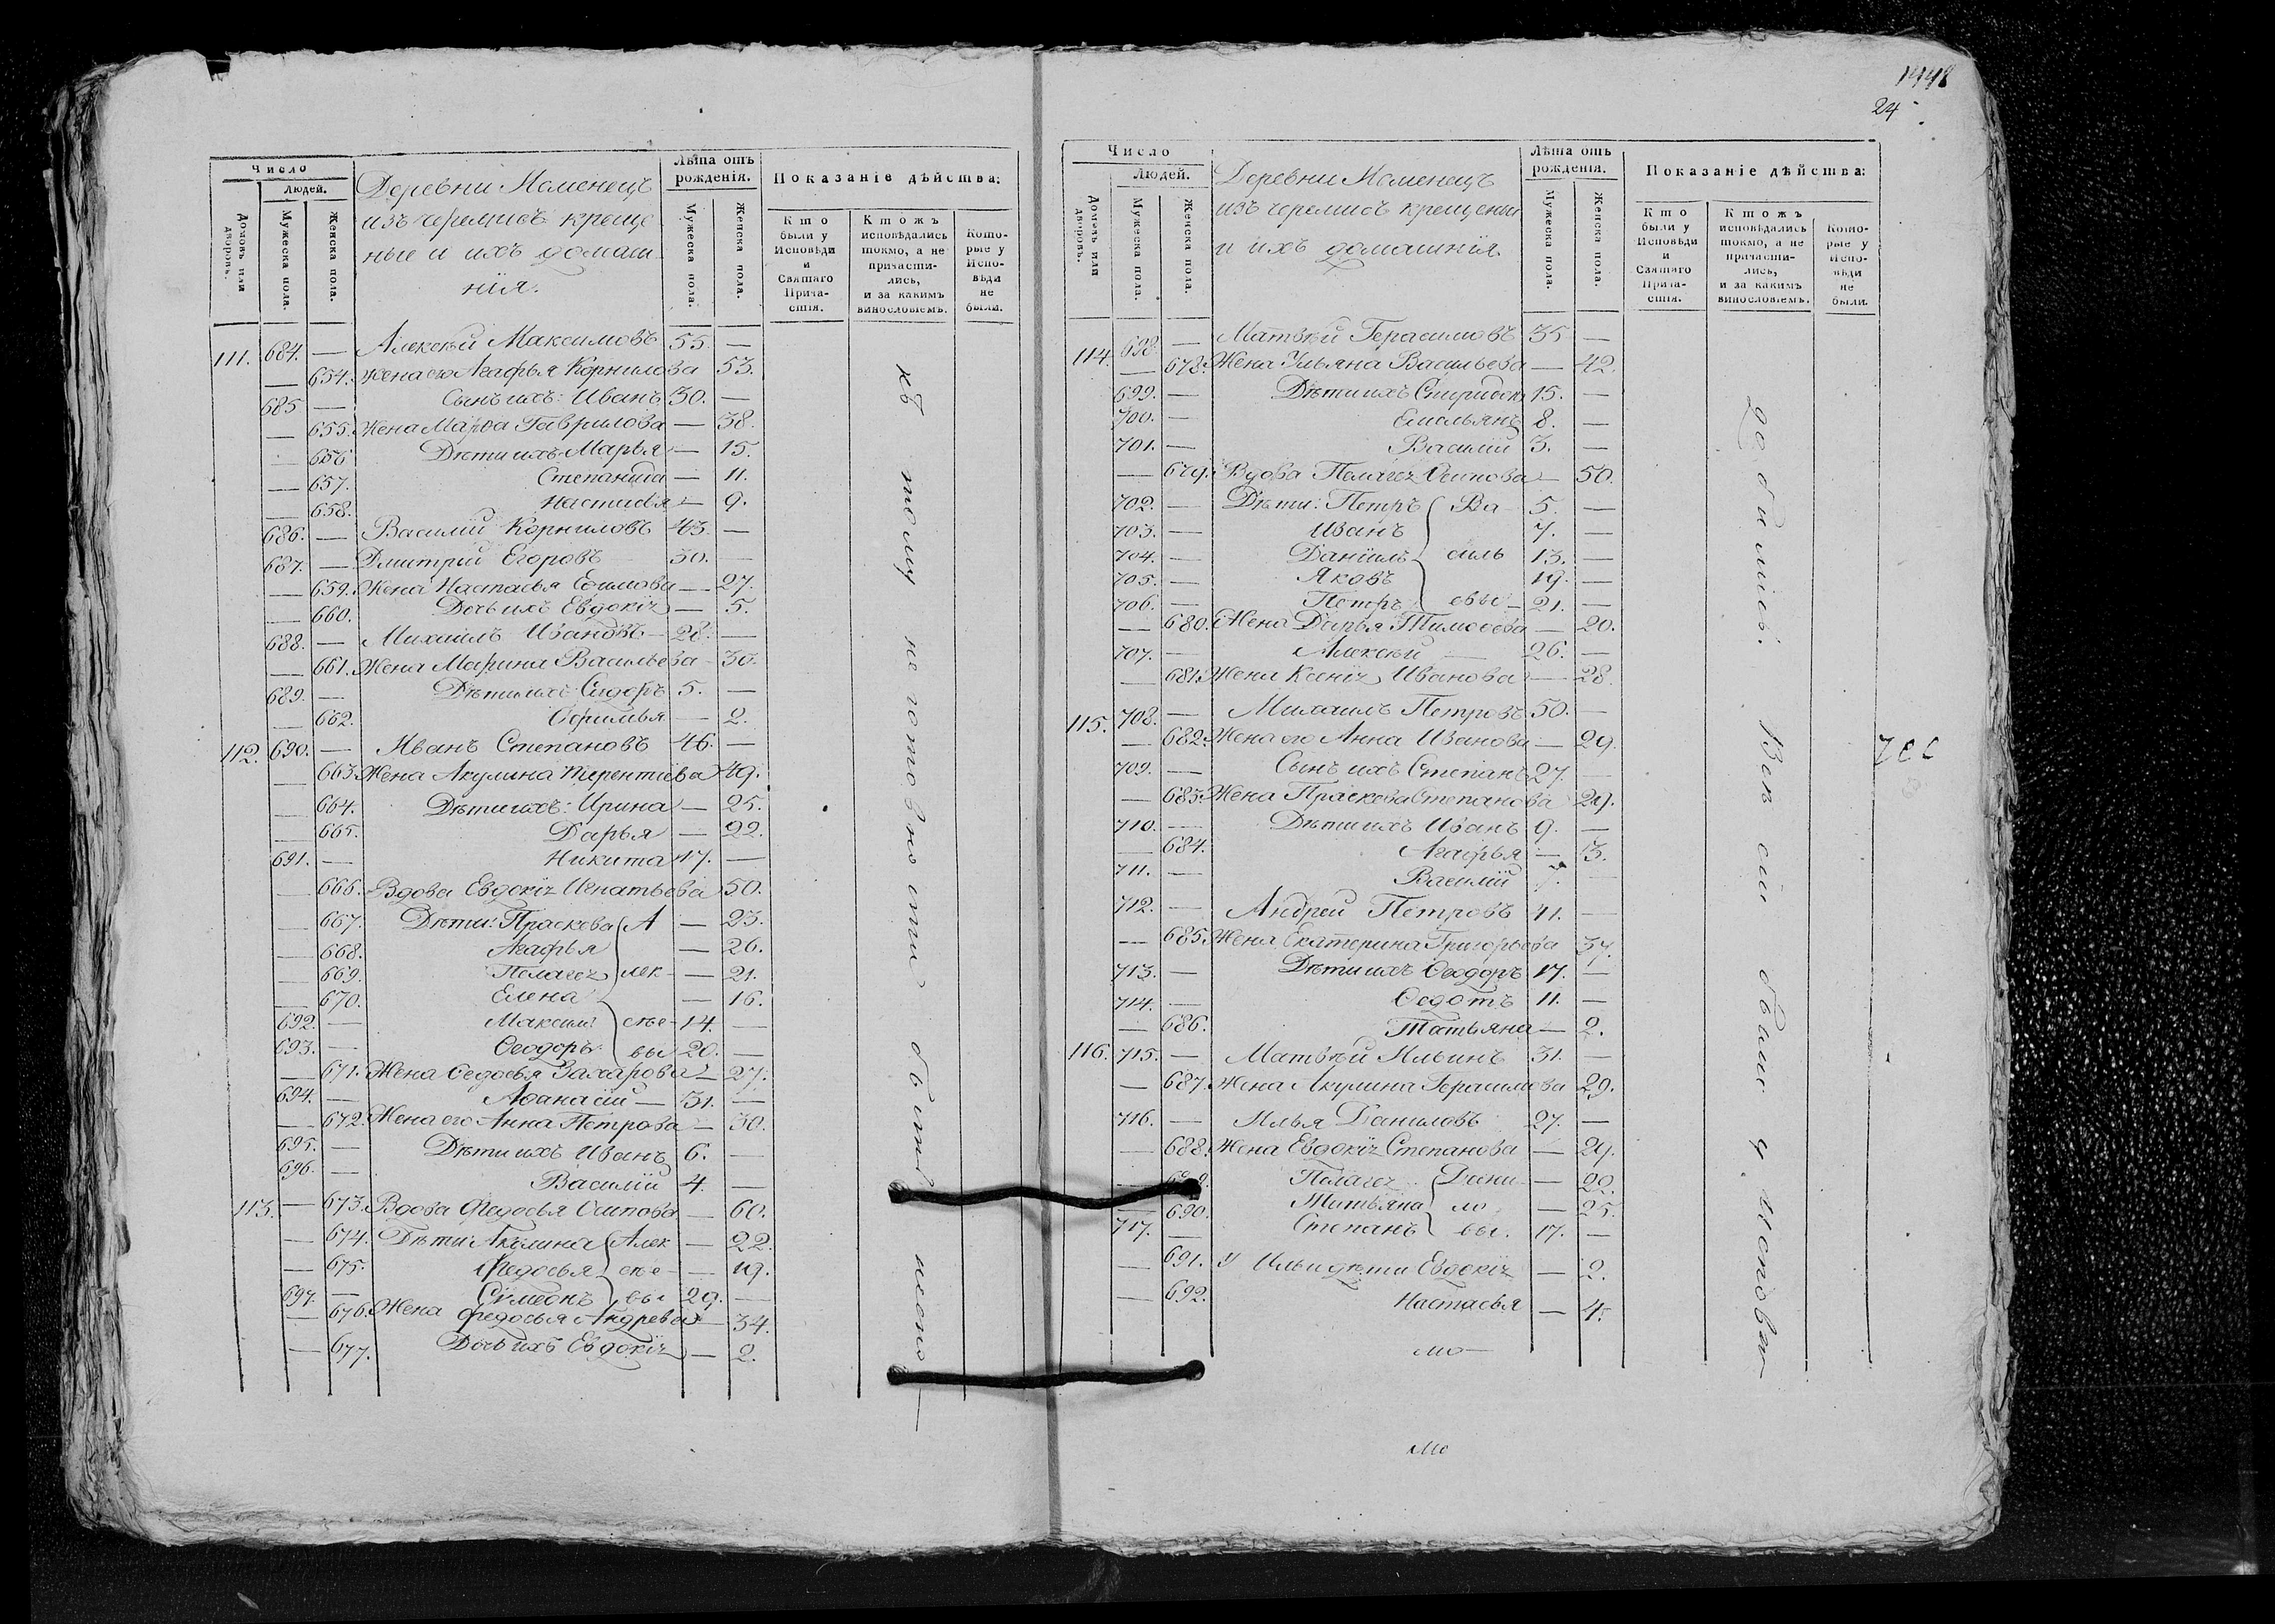 Число
Людей.
Домовъ или дворовъ.
Мужеска пола.
Женска пола.
Деревни Маменецъ
изъ черемисъ креще
ные и ихъ домаш
нiя.
Лѣта отъ рожденiя.
Мужеска пола.
Женска пола.
Показанiе дѣйства:
Кто были у Исповѣди и Святаго Причастiя.
Ктожъ исповѣдались токмо, а не причастились, и за какимъ винословiемъ.
Которые у Исповѣди не были.
111. 684. — Алексѣй Максимовъ 55. —
— 654. Жена его Агафья Корнилова 53.
685 — Сынъ ихъ: Иванъ 30. —
— 655. Жена Марѳа Гаврилова — 38.
— 656 Дѣти ихъ Марья — 15.
— 657. Степанида — 11.
— 658. Настасья — 9.
686. — Василiй Корниловъ 43. —
687. — Дмитрiй Егоровъ 30. —
— 659. Жена Настасья Ефимова — 27.
— 660. Дочь ихъ Евдокiя — 5.
688. — Михаилъ Ивановъ 28. —
— 661. Жена Марина Васильева 30.
689. — Дѣти ихъ Сидоръ 5. —
— 662. Офимья — 2.
112. 690. — Иванъ Степановъ 46. —
— 663. Жена Акулина Терентiева 49.
— 664. Дѣти ихъ: Ирина — 25.
— 665. Дарья — 22.
691. — Никита 17. —
— 666. Вдова Евдокiя Игнатьева 50.
— 667. Дѣти: Праскева А — 23.
— 668. Агафья — 26.
— 669. Пелагея лек — 21.
— 670. Елена — 16.
692. — Максимъ сѣе 14. —
693. — Ѳеодоръ вы 20. —
— 671. Жена Ѳедосья Захарова — 27.
694. — Аѳанасiй — 31. —
— 672. Жена его Анна Петрова — 30.
695. — Дѣти ихъ Иванъ 6. —
696. — Василiй 4. —
113. — 673. Вдова Федосья Осипова — 60.
— 674. Дѣти Акулина Алек — 22.
— 675. Федосья сѣе — 19.
697. — Симеонъ вы 29. —
— 676. Жена Федосья Андрева — 34.
— 677. Дочь ихъ Евдокiя — 2.
къ тому не готовности
1448
24
Число
Людей.
Домовъ или дворовъ.
Мужеска пола.
Женска пола.
Деревни Маменецъ
изъ черемисъ крещеныя
и ихъ домашнiя
Лѣта отъ рожденiя.
Мужеска пола.
Женска пола.
Показанiе дѣйства:
Кто были у Исповѣди и Святаго Причастiя.
Ктожъ исповѣдались токмо, а не причастились, и за какимъ винословiемъ.
Которые у Исповѣди не были.
114. 698. — Матвѣй Герасимовъ 35 —
— 678. Жена Ульяна Васильева — 42.
699. — Дѣти ихъ Спиридонъ 15. —
700. — Емельянъ 8. —
701. — Василiй 3. —
— 679. Вдова Пелагея Осипова — 50.
702. — Дѣти: Петръ Ва 5. —
703. — Иванъ 7. —
704. — Данiилъ силь 13. —
705. — Яковъ 19. —
706. — Петръ евы 21. —
— 680. Жена Дарья Тимоѳева — 20.
707. — Алексѣй 26. —
— 681. Жена Ксенiя Иванова — 28.
115. 708. — Михаилъ Петровъ 50. —
— 682. Жена его Анна Иванова — 29.
709. — Сынъ ихъ Степанъ 27. —
— 683. Жена Праскева Степанова 29.
710. — Дѣти ихъ Иванъ 9. —
— 684. Агафья — 13.
711. — Василiй 7. —
712. — Андрей Петровъ 41. —
— 685. Жена Екатерина Григорьева 37.
713. — Дѣти ихъ Ѳеодоръ 17. —
714. — Ѳедотъ 11. —
— 686. Татьяна — 2.
116. 715. — Матвѣй Ильинъ 31. —
— 687. Жена Акулина Герасимова 29.
716. — Илья Даниловъ 27. —
— 688. Жена Евдокiя Степанова — 29.
— 689. Пелагея Дани — 29.
— 690. Татьяна ло — 25.
717. — Степанъ вы. 17. —
— 691. У Ильи дѣти Евдокiя — 2.
— 692. Настасья — 4.
добились. Всѣ сiи были у исповѣди
мо
мо